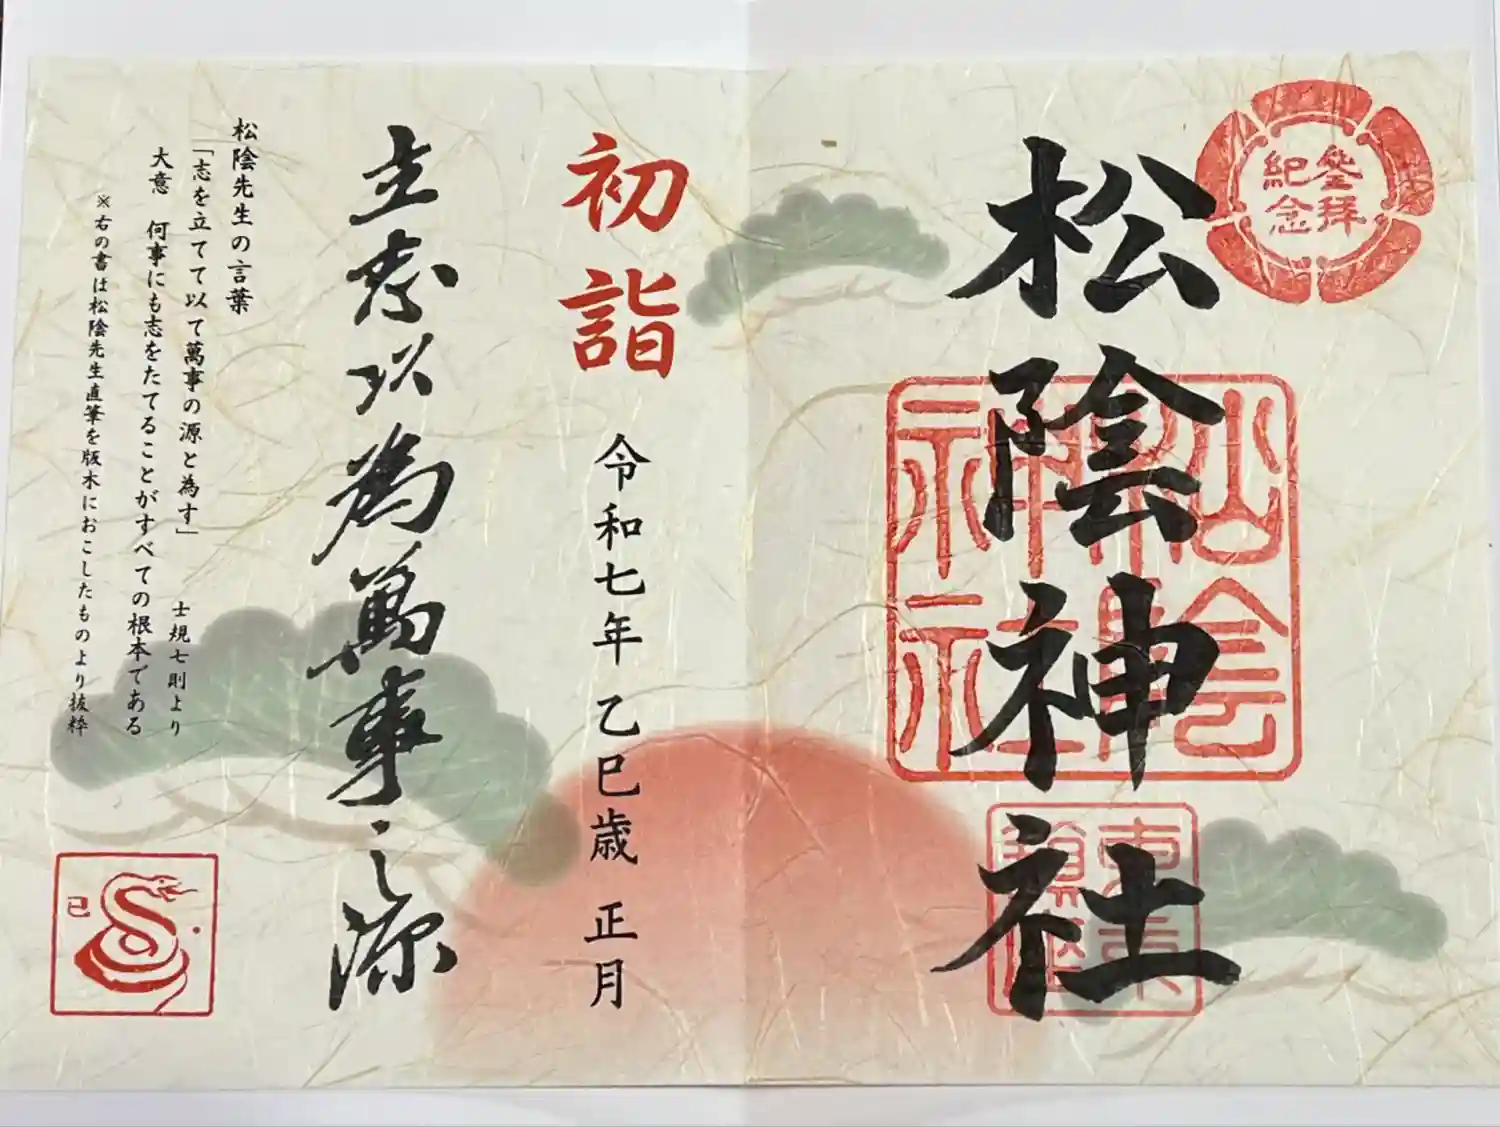 參拝
紀念
松陰神社
松陰
神社
東京
鎮座
初詣
令和七年 乙巳歳 正月
立志以為萬事之源
松陰先生の言葉
「志を立てて以て萬事の源と為す」
士規七則より
大意 何事にも志をたてることがすべての根本である
※右の書は松陰先生直筆を版木におこしたものより抜粋
巳